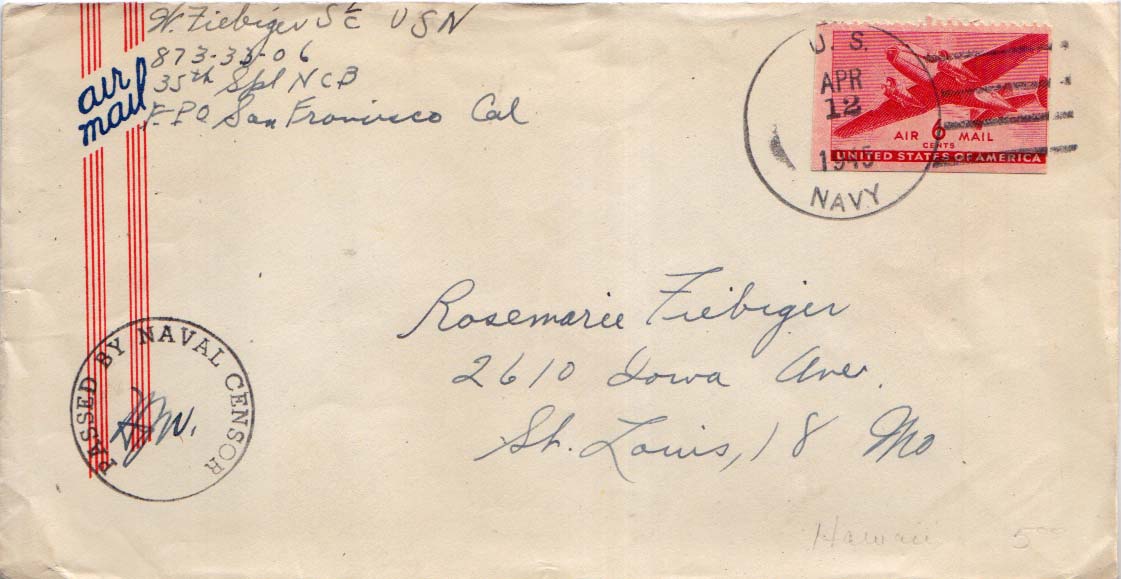 W. Fiebiger S1c USN
873-33-06
35th Spl NCB
F.P.O. San Francisco Cal
air mail
U. S.
APR
12
1945
NAVY
AIR 6 MAIL
CENTS
UNITED STATES OF AMERICA
Rosemarie Fiebiger
2610 Iowa Ave.
St. Louis, 18 Mo
PASSED BY NAVAL CENSOR
Hawaii 5